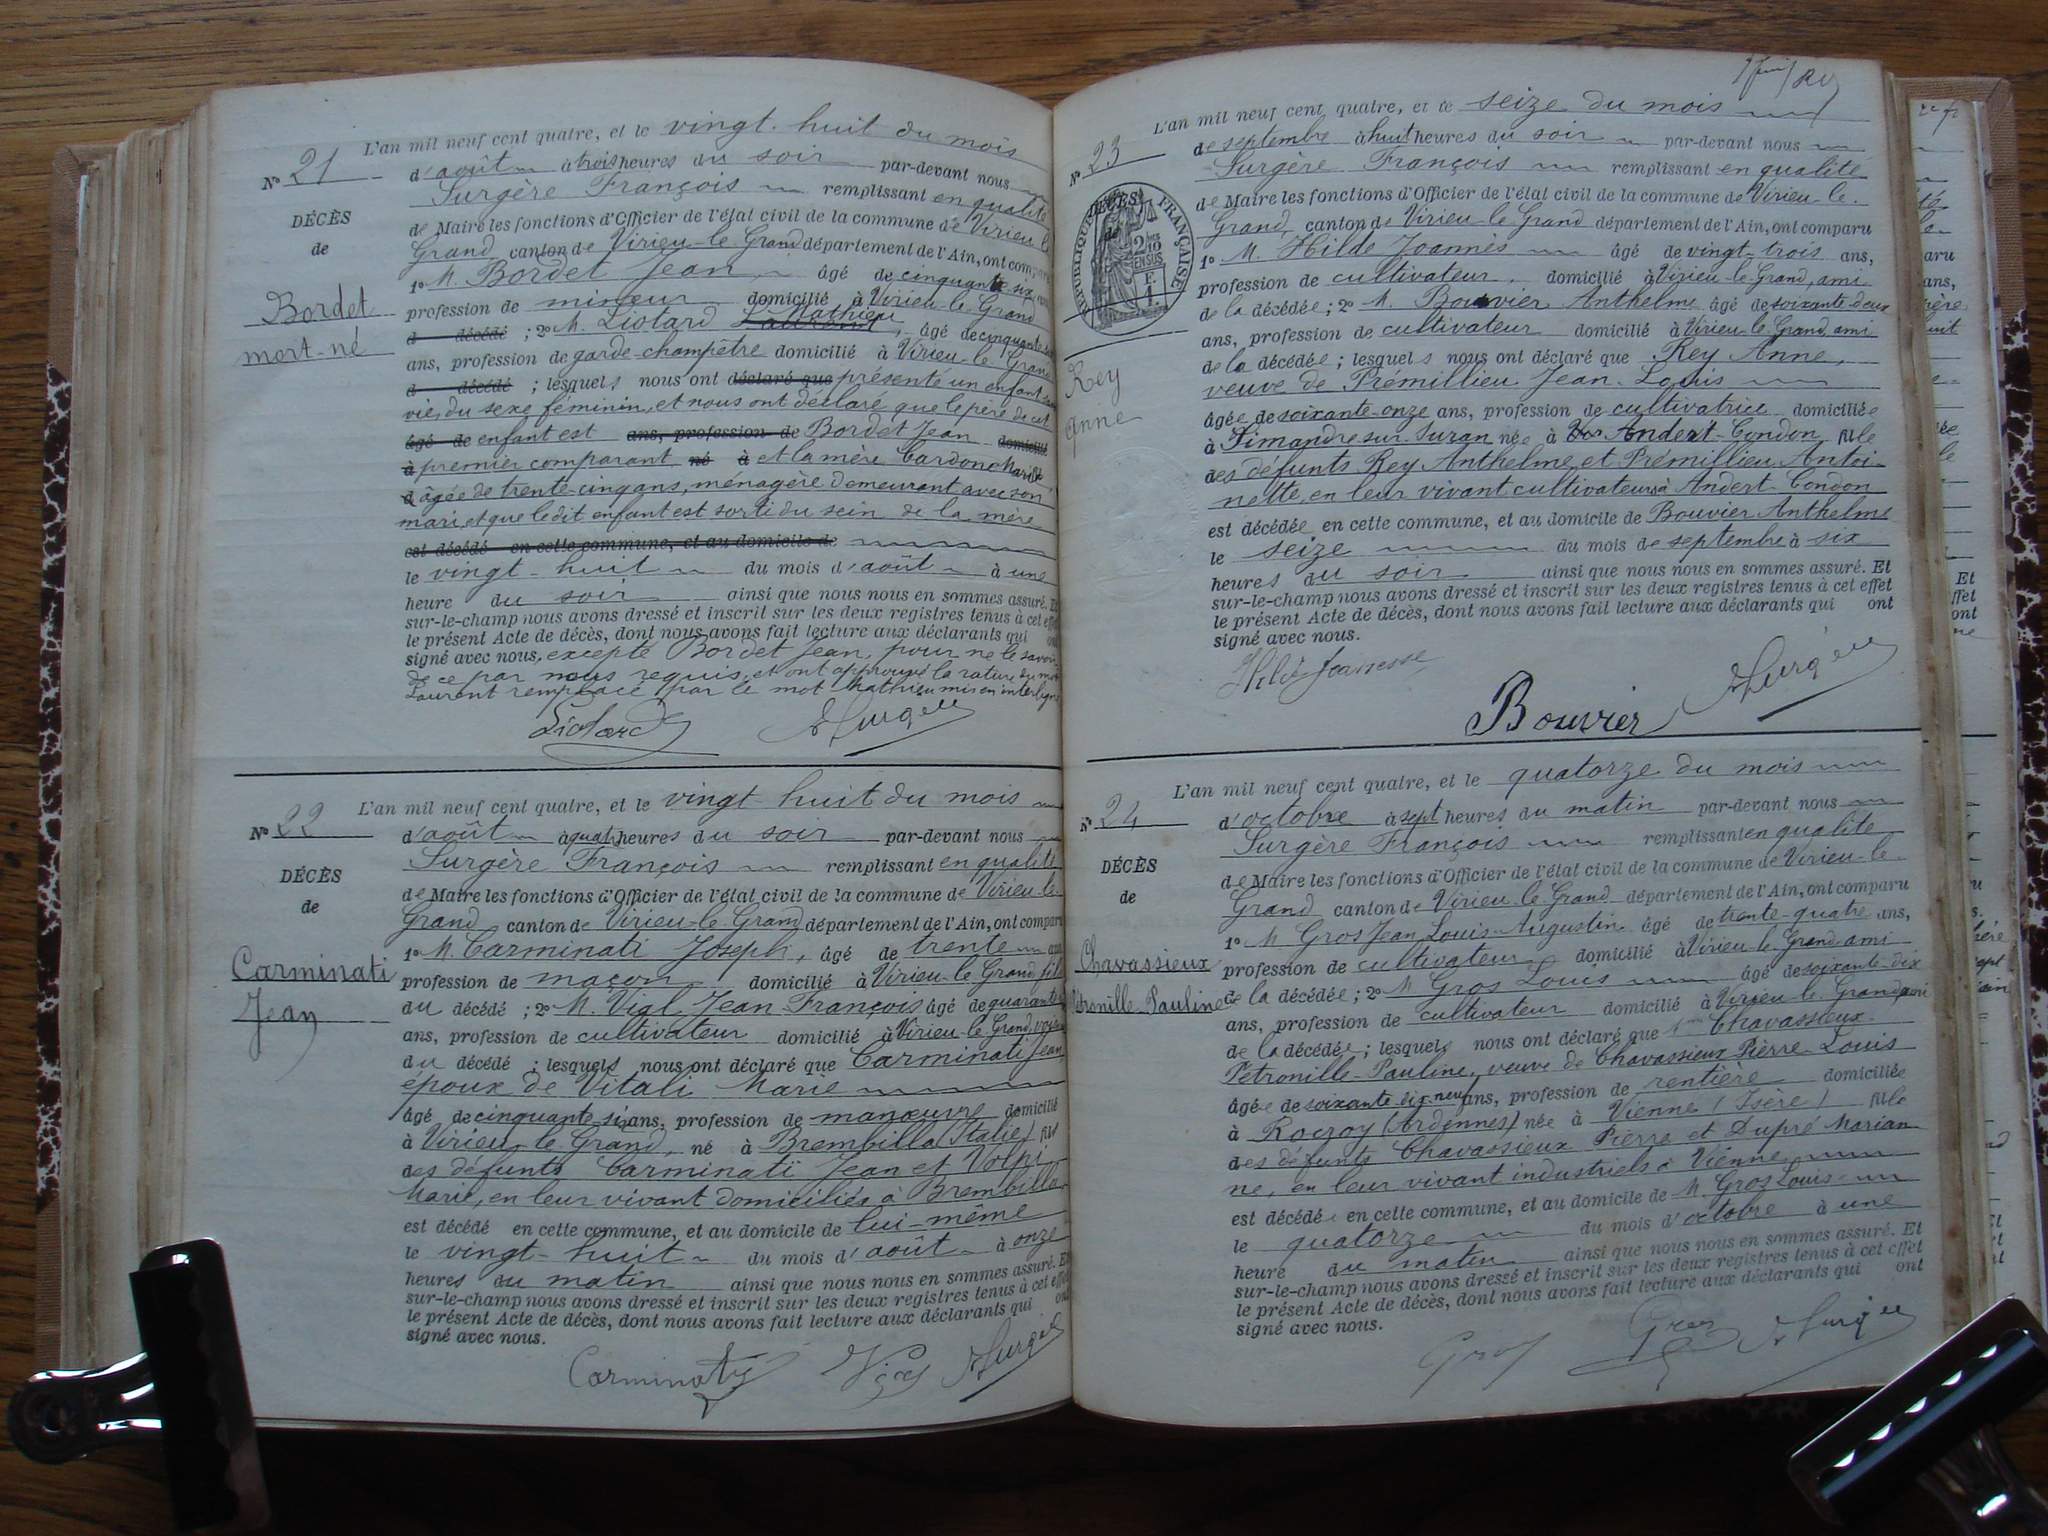 L'an mil neuf cent quatre, et le vingt-huit du mois
N° 21
d'août à trois heures du soir par-devant nous
Surgère François remplissant en qualité
DÉCÈS
de Maire les fonctions d'Officier de l'état civil de la commune de Virieu-le
de
Grand canton de Virieu-le-Grand département de l'Ain, ont comparu
1° M. Bordet Jean, âgé de cinquante six ans
Bordet
profession de mineur domicilié à Virieu-le-Grand
mort-né
d décédé ; 2° M. Liotard Laurent Mathieu, âgé de cinquante
ans, profession de garde-champêtre domicilié à Virieu-le-Grand
d décédé ; lesquels nous ont déclaré que présenté un enfant sans
vie, du sexe féminin, et nous ont déclaré que le père de cet
âgé de enfant est ans, profession de Bordet Jean domicilié
à premier comparant né à et la mère Cardon Marie
d âgée de trente-cinq ans, ménagère demeurant avec son
mari, et que le dit enfant est sorti du sein de la mère
est décédé en cette commune, et au domicile de
le vingt-huit du mois d'août à une
heure du soir ainsi que nous nous en sommes assuré. Et
sur-le-champ nous avons dressé et inscrit sur les deux registres tenus à cet effet
le présent Acte de décès, dont nous avons fait lecture aux déclarants qui ont
signé avec nous, excepté Bordet Jean, pour ne le savoir
de ce par nous requis, et ont approuvé la rature du mot
Laurent remplacé par le mot Mathieu mis en interligne
Liotard Surgère
L'an mil neuf cent quatre, et le vingt-huit du mois
N° 22
d'août à quatre heures du soir par-devant nous
Surgère François remplissant en qualité
DÉCÈS
de Maire les fonctions d'Officier de l'état civil de la commune de Virieu-le-
de
Grand canton de Virieu-le-Grand département de l'Ain, ont comparu
1° M. Carminati Joseph, âgé de trente ans
Carminati
profession de maçon domicilié à Virieu-le-Grand fils
Jean
du décédé ; 2° M. Vial Jean-François âgé de quarante
ans, profession de cultivateur domicilié à Virieu-le-Grand, voisin
du décédé ; lesquels nous ont déclaré que Carminati Jean
époux de Vitali Marie
âgé de cinquante six ans, profession de manœuvre domicilié
à Virieu-le-Grand, né à Brembilla (Italie) fils
des défunts Carminati Jean et Volpi
Marie, en leur vivant domiciliés à Brembilla
est décédé en cette commune, et au domicile de lui-même
le vingt-huit du mois d'août à onze
heures du matin ainsi que nous nous en sommes assuré. Et
sur-le-champ nous avons dressé et inscrit sur les deux registres tenus à cet effet
le présent Acte de décès, dont nous avons fait lecture aux déclarants qui ont
signé avec nous.
Carminati Vial Surgère
L'an mil neuf cent quatre, et le seize du mois
N° 23
de septembre à huit heures du soir par-devant nous
Surgère François remplissant en qualité
DÉCÈS
de
RÉPUBLIQUE FRANÇAISE
2/10 EN SUS
de Maire les fonctions d'Officier de l'état civil de la commune de Virieu-le-
Grand, canton de Virieu-le-Grand département de l'Ain, ont comparu
1° M. Hilde Joannès âgé de vingt-trois ans,
profession de cultivateur, domicilié à Virieu-le-Grand, ami
de la décédée ; 2° M. Bouvier Anthelme âgé de soixante-deux
ans, profession de cultivateur domicilié à Virieu-le-Grand, ami
de la décédée ; lesquels nous ont déclaré que Rey Anne,
Rey
veuve de Prémillieu Jean-Louis
Anne
âgée de soixante-onze ans, profession de cultivatrice domiciliée
à Simandre sur Suran née à Andert-Condon fille
des défunts Rey Anthelme et Prémillieu Antoi-
nette, en leur vivant cultivateurs à Andert-Condon
est décédée en cette commune, et au domicile de Bouvier Anthelme
le seize du mois de septembre à six
heures du soir ainsi que nous nous en sommes assuré. Et
sur-le-champ nous avons dressé et inscrit sur les deux registres tenus à cet effet
le présent Acte de décès, dont nous avons fait lecture aux déclarants qui ont
signé avec nous.
Bouvier Surgère
L'an mil neuf cent quatre, et le quatorze du mois
N° 24
d'octobre à sept heures du matin par-devant nous
Surgère François remplissant en qualité
DÉCÈS
de Maire les fonctions d'Officier de l'état civil de la commune de Virieu-le-
de
Grand canton de Virieu le Grand département de l'Ain, ont comparu
1° M. Gros Jean Louis-Augustin âgé de trente-quatre ans,
Chavassieux
profession de cultivateur domicilié à Virieu-le-Grand ami
Pétronille-Pauline
de la décédée ; 2° M Gros Louis âgé de soixante-dix
ans, profession de cultivateur domicilié à Virieu-le-Grand ami
de la décédée ; lesquels nous ont déclaré que Chavassieux
Pétronille-Pauline, veuve de Chavassieux Pierre-Louis
âgée de soixante dix-neuf ans, profession de rentière domiciliée
à Rocroy (Ardennes) née à Vienne (Isère) fille
des défunts Chavassieux Pierre et Dupré Marian
ne, en leur vivant industriels à Vienne
est décédée en cette commune, et au domicile de M. Gros Louis
le quatorze du mois d'octobre à une
heure du matin ainsi que nous nous en sommes assuré. Et
sur-le-champ nous avons dressé et inscrit sur les deux registres tenus à cet effet
le présent Acte de décès, dont nous avons fait lecture aux déclarants qui ont
signé avec nous.
Gros Gros Surgère